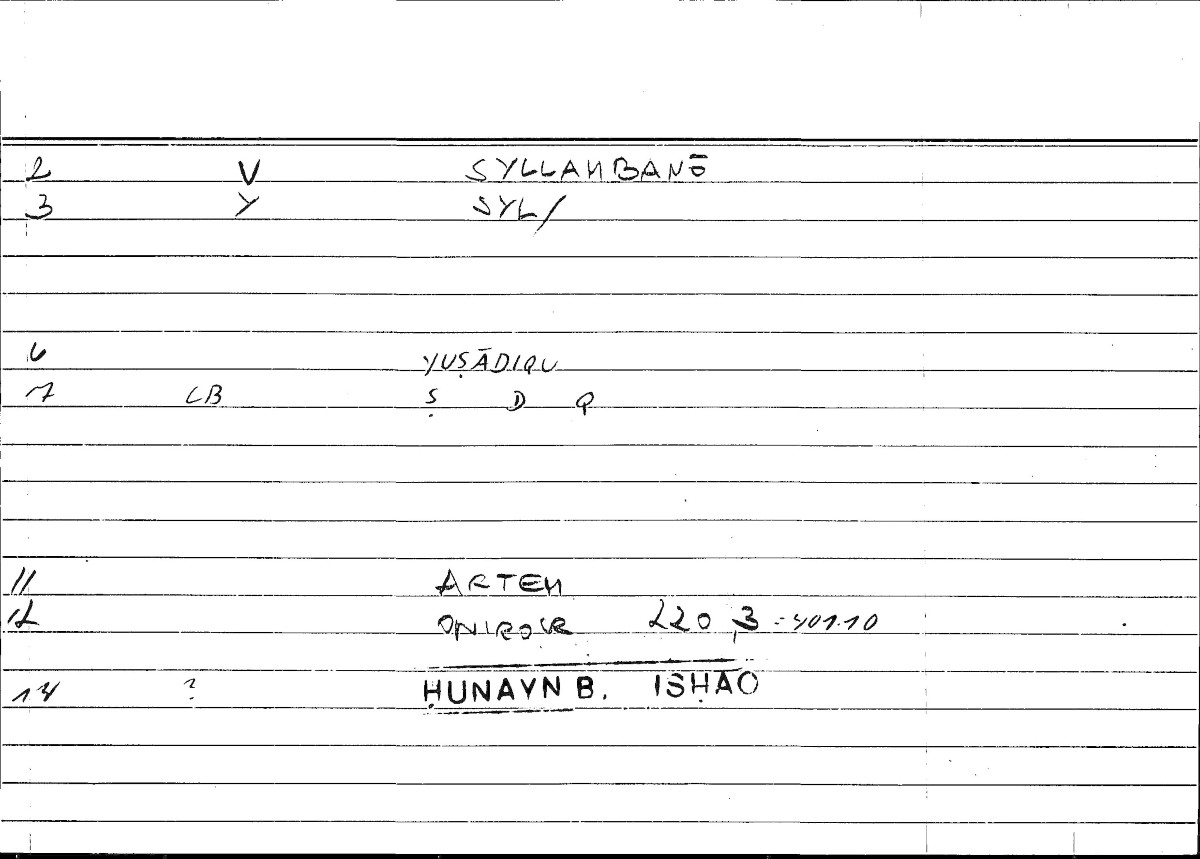 2 V SYLLAMBANŌ
3 Y SYL/
6 YUṢĀDIQU
7 LB Ṣ D Q
11 ARTEM
12 ONIROCR 220,3 = 401.10
14 ? ḤUNAYN B. ISḤĀQ